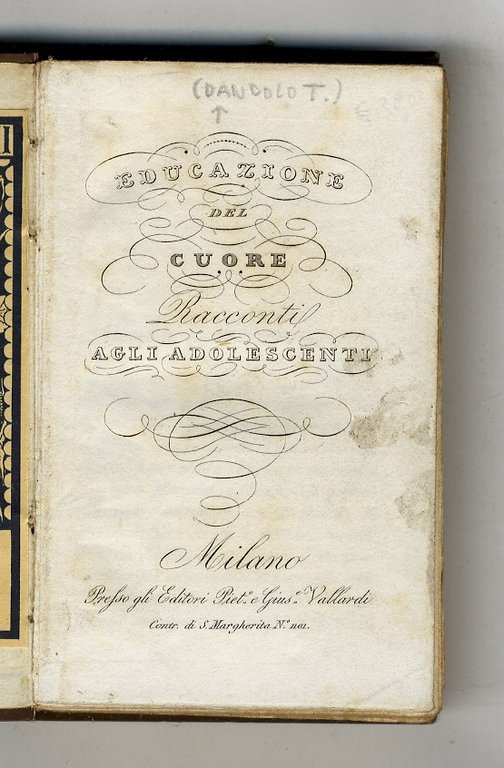 (DANDOLO T.)
EDUCAZIONE
DEL
CUORE
Racconti
AGLI ADOLESCENTI
Milano
Presso gli Editori Piet.º e Gius.e Vallardi
Contr. di S. Margherita N.º 1101.